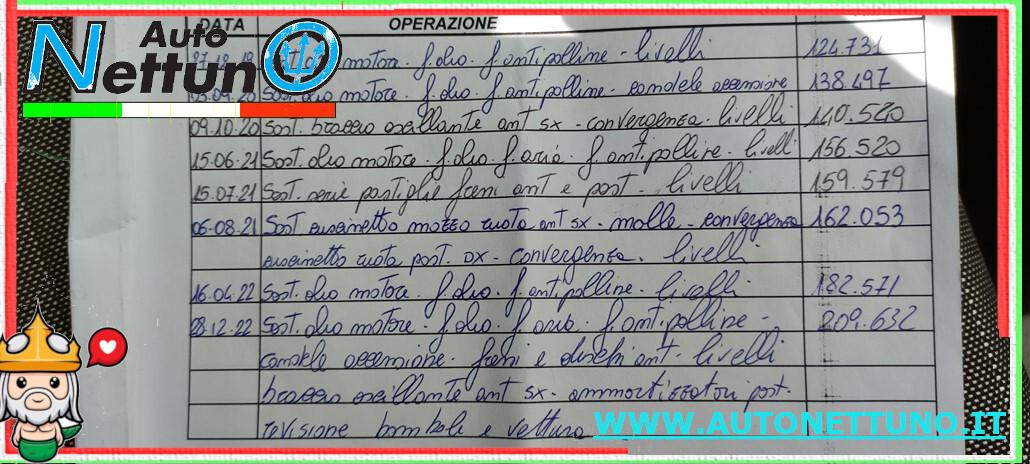 DATA OPERAZIONE
Auto
Nettuno
motore - f.olio - f.antipolline - livelli 124.731
03.09.20 Sost. olio motore - f.olio f.antipolline - candele accensione 138.497
09.10.20 Sost. braccio oscillante ant sx - convergenza - livelli 140.520
15.06.21 Sost. olio motore - f.olio f.aria. f.antipolline - livelli 156.520
15.07.21 Sost. serie pastiglie freni ant e post. livelli 159.579
06-08.21 Sost cuscinetto mozzo ruota ant sx - molle - convergenza 162.053
cuscinetto ruota post. DX - convergenza. livelli
16.04.22 Sost. olio motore - f.olio. f.antipolline - livelli 182.571
28.12.22 Sost. olio motore - f.olio. f.aria f.antipolline - 209.632
candele accensione - freni e dischi ant. livelli
braccio oscillante ant sx - ammortizzatori post.
revisione bombole e vettura
WWW.AUTONETTUNO.IT